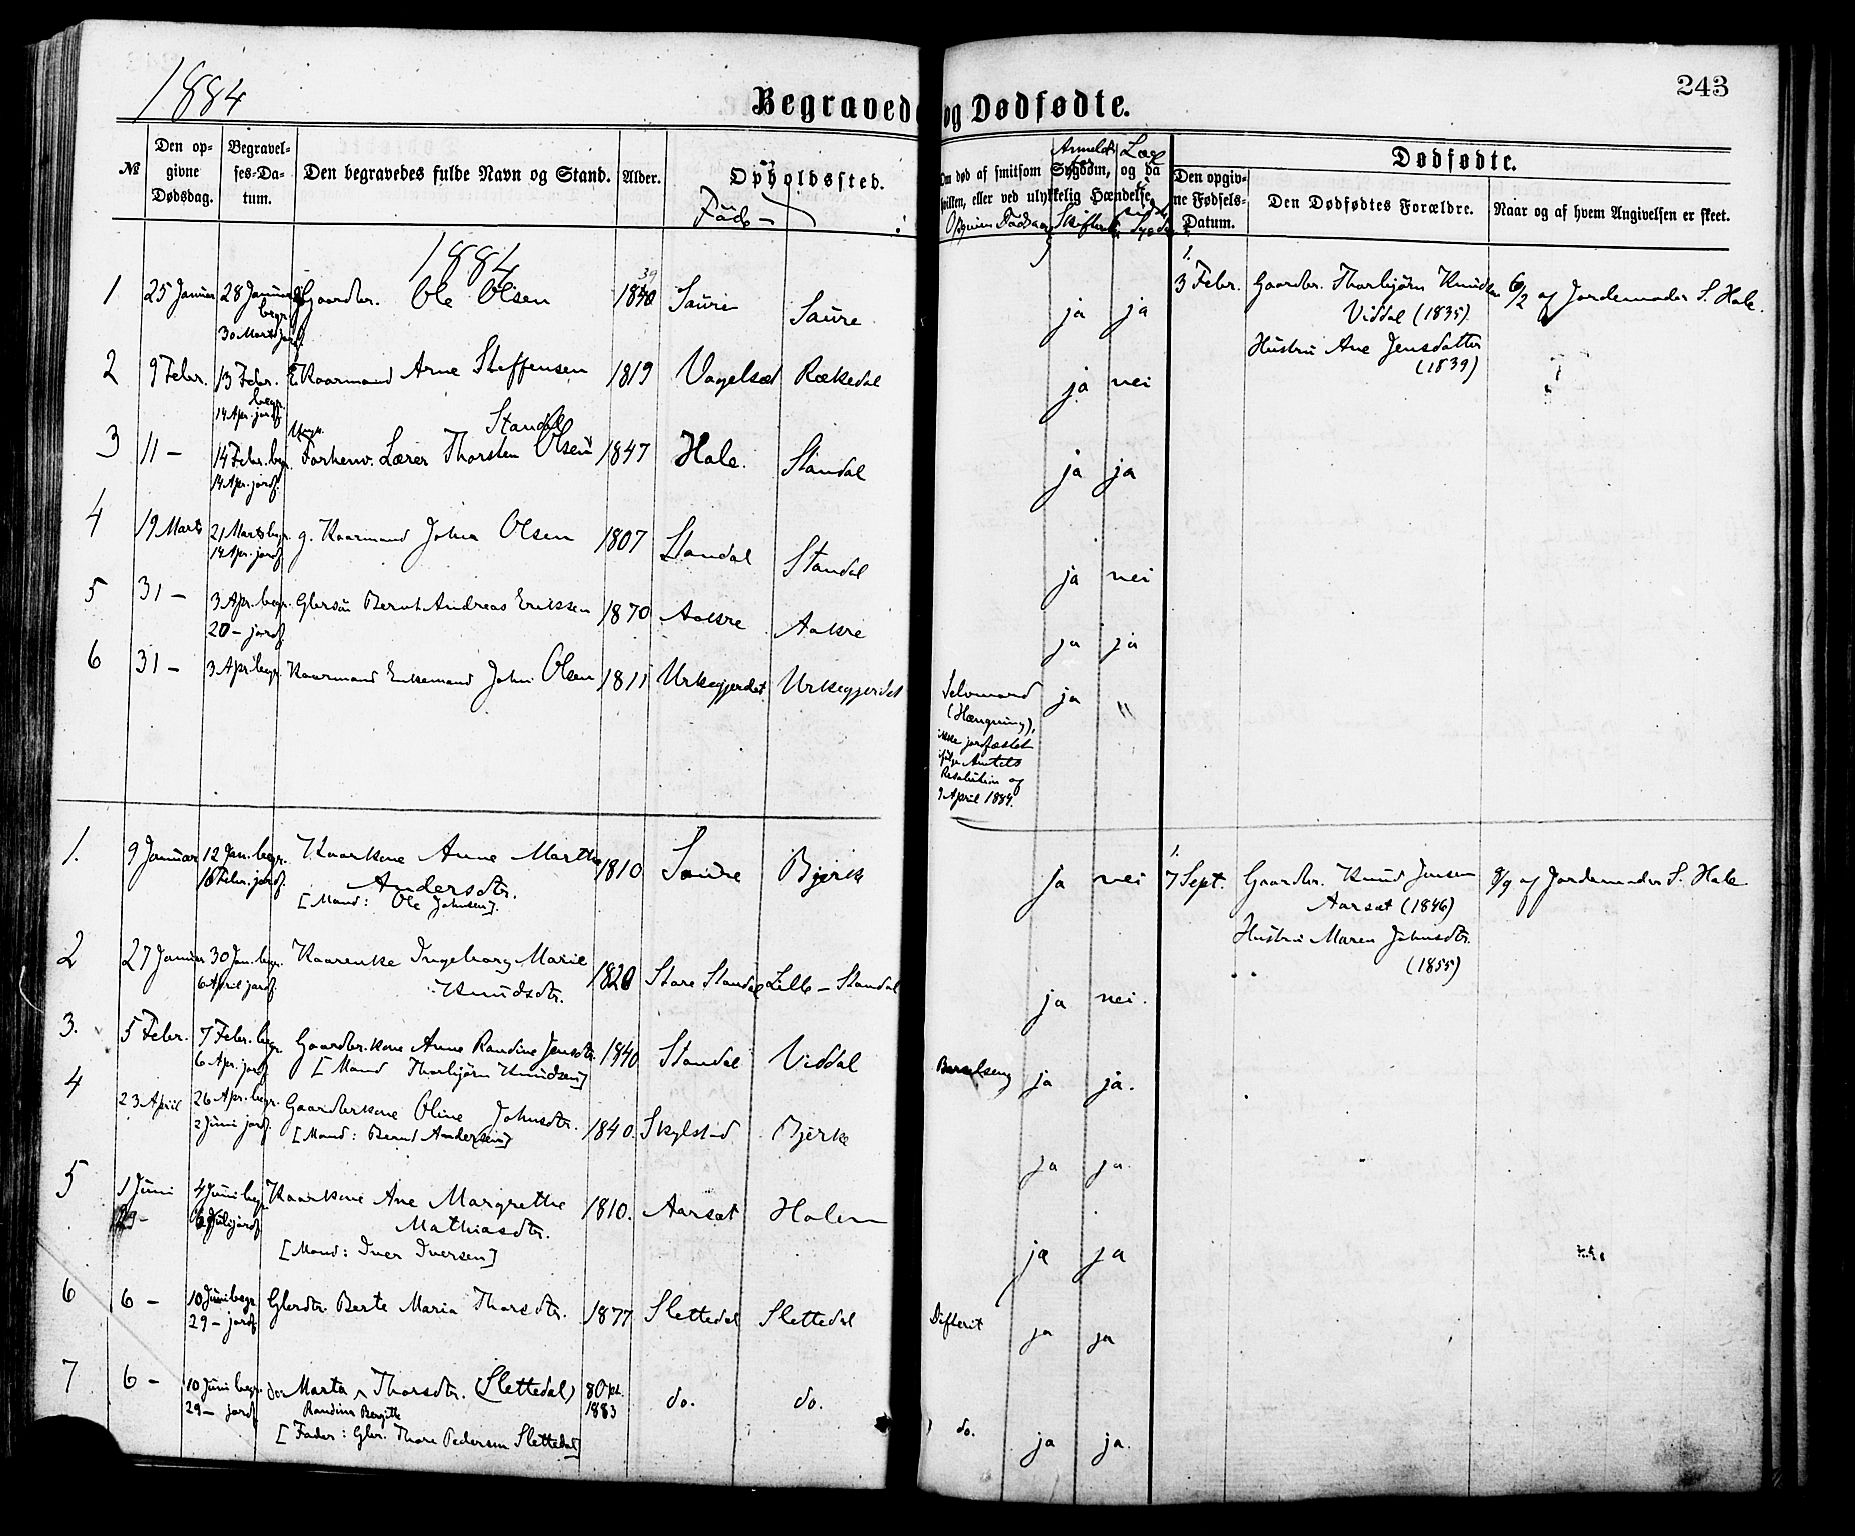 1884
Begravede og Dødfødte.
243
№
Den opgivne Dødsdag.
Begravelses-Datum.
Den begravedes fulde Navn og Stand.
Alder.
Opholdssted.
Føde-
Om død af smitsom Sygdom,
hvilken, eller ved ulykkelig Hændelse.
og da
Dødfødte.
Den opgivne Fødsels-Datum.
Den Dødfødtes Forældre.
Naar og af hvem Angivelsen er skeet.
1884
1 25 Januar 28 Januar begr. Gaardbr. Ole Olsen 1839 Saure Saure ja ja
30 Marts jordf.
2 9 Febr. 13 Febr. begr. Kaarmand Arne Steffensen 1819 Vagelsæt Rækedal ja nei
14 Apr. jordf.
Standal
3 11 – 14 Febr. begr. Forhenv. Lærer Thorsten Olsen 1847 Hole. Standal ja ja
14 Apr. jordf.
4 19 Marts 21 Marts begr. g. Kaarmand Johan Olsen 1807 Standal Standal ja nei
14 Apr. jordf.
5 31 – 3 Apr. begr. Gbrsøn Bernt Andreas Eriksen 1870 Aakre Aakre ja ja
20 – jordf.
6 31 – 3 April begr. Kaarmand Enkemand John Olsen 1811 Urkegjerdet Urkegjerdet ja "
Selvmord
(Hængning),
ikke jordfæstet
ifølge Amtets
Resolution af
9 April 1884.
1.
3 Febr. Gaardbr. Thorbjørn Knudsen 6/2 af Jordemoder S. Hole.
Viddal (1835)
Hustru Ane Jensdatter
(1839)
1. 9 Januar 12 Jan. begr. Kaarkone Anne Marthe 1810 Saure Bjørk ja nei
16 Febr. jordf. Andersdtr.
[Mand: Ole Johnsen].
2 27 Januar 30 Jan. begr. Kaarenke Ingeborg Marie 1820 Store Standal Lille-Standal ja nei.
6 April jordf. Knudsdtr.
3. 5 Febr. 7 Febr. begr. Gaardbr.kone Anne Randine Jensdtr. 1840 Standal Viddal Barselseng ja ja.
6 Apr. jordf. [Mand Thorbjørn Knudsen]
4 23 April 26 Apr. begr. Gaardbrkone Oline Johnsdtr. 1840. Skylstad Bjørk ja ja.
2 Juni jordf. [Mand: Bernt Andersen]
5 1 Juni 4 Juni begr. Kaarkone Ane Margrethe 1810. Aarsæt Holen ja ja
Mathiasdtr.
[Mand: Iver Iversen]
6 6 – 10 Juni begr. Gbrdtr. Berte Maria Thorsdtr. 1877 Slettedal Slettedal Difterit ja ja
29 – jordf.
7 6 – 10 Juni begr. do. Marta Thorsdtr. (Slettedal) 8 Okt. do. do. do. ja ja.
29 – jordf. Randine Bergitte 1883
[Fader: Gbr. Thore Pedersen Slettedal]
1.
7 Sept. Gaardbr. Knud Jensen 8/9 af Jordemoder S. Hole
Aarsæt (1846)
Hustru Maren Johnsdtr.
(1855)